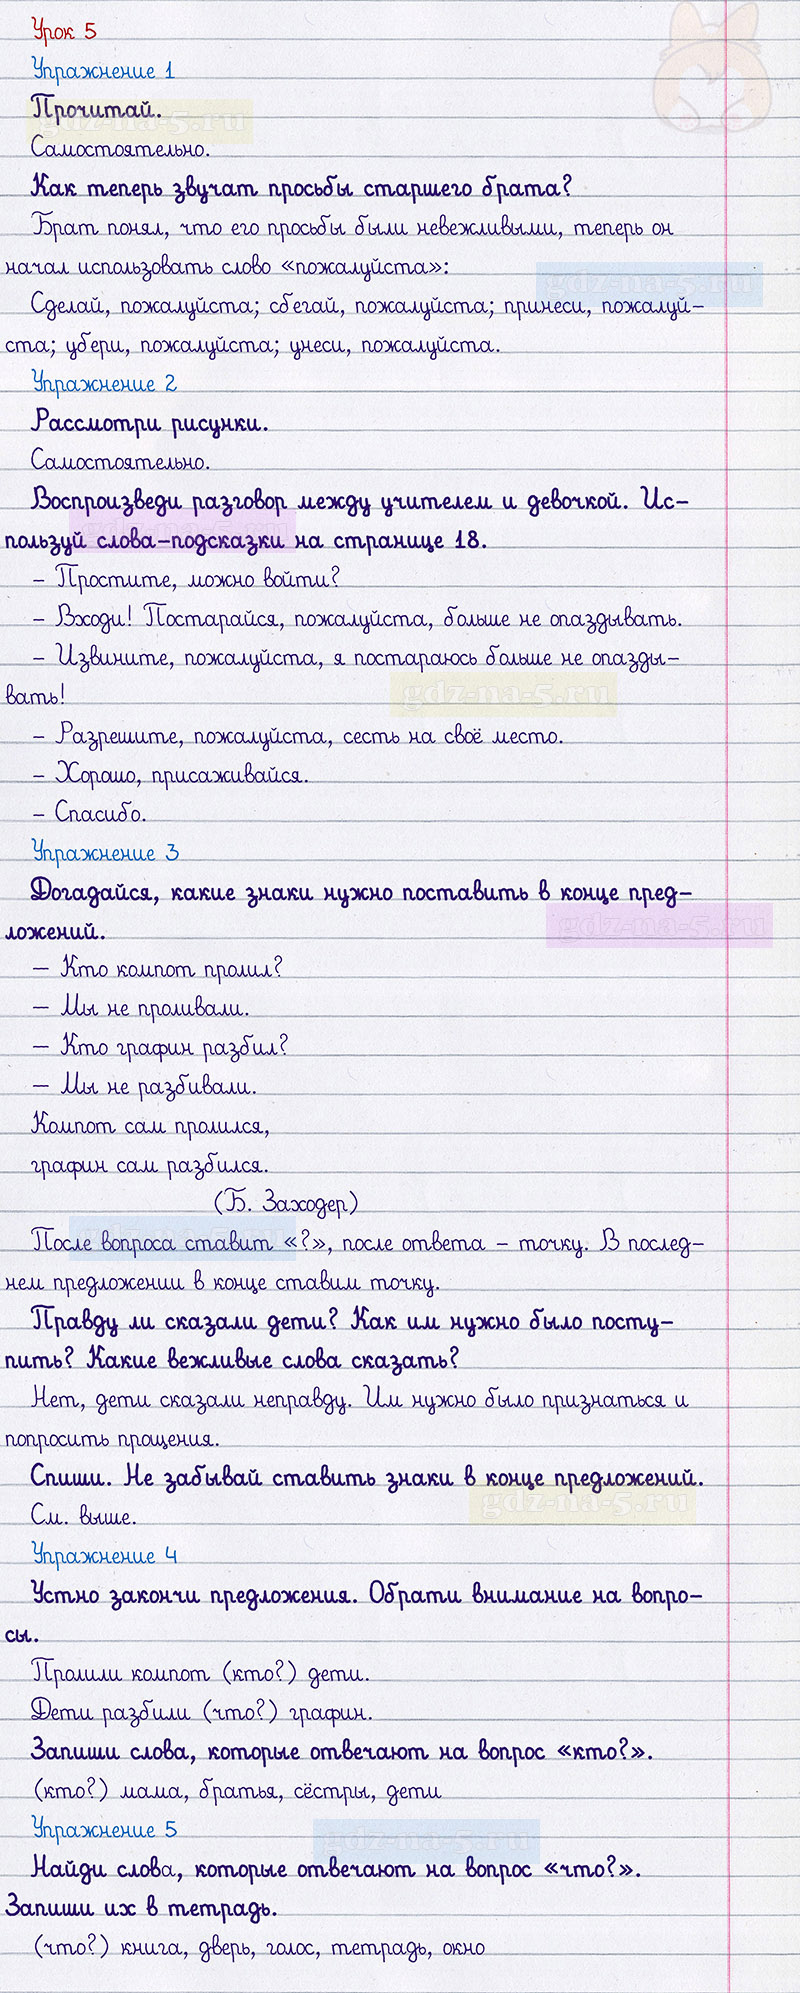 Урок 5
Упражнение 1
Прочитай.
gdz-na-5.ru
Самостоятельно.
Как теперь звучат просьбы старшего брата?
Брат понял, что его просьбы были невежливыми, теперь он
начал использовать слово «пожалуйста»:
gdz-na-5.ru
Сделай, пожалуйста; сбегай, пожалуйста; принеси, пожалуй-
ста; убери, пожалуйста; унеси, пожалуйста.
Упражнение 2
Рассмотри рисунки.
Самостоятельно.
Воспроизведи разговор между учителем и девочкой. Ис-
gdz-na-5.ru
пользуй слова-подсказки на странице 18.
- Простите, можно войти?
- Входи! Постарайся, пожалуйста, больше не опаздывать.
- Извините, пожалуйста, я постараюсь больше не опазды-
вать!
gdz-na-5.ru
- Разрешите, пожалуйста, сесть на своё место.
- Хорошо, присаживайся.
- Спасибо.
Упражнение 3
Догадайся, какие знаки нужно поставить в конце пред-
ложений.
gdz-na-5.ru
— Кто компот пролил?
— Мы не проливали.
— Кто графин разбил?
— Мы не разбивали.
Компот сам пролился,
графин сам разбился.
(Б. Заходер)
gdz-na-5.ru
После вопроса ставит «?», после ответа - точку. В послед-
нем предложении в конце ставим точку.
Правду ли сказали дети? Как им нужно было посту-
пить? Какие вежливые слова сказать?
Нет, дети сказали неправду. Им нужно было признаться и
попросить пращения.
Спиши. Не забывай ставить знаки в конце предложений.
gdz-na-5.ru
См. выше.
Упражнение 4
Устно закончи предложения. Обрати внимание на вопро-
сы.
Пролили компот (кто?) дети.
Дети разбили (что?) графин.
Запиши слова, которые отвечают на вопрос «кто?».
(кто?) мама, братья, сёстры, дети
Упражнение 5
gdz-na-5.ru
Найди слова, которые отвечают на вопрос «что?».
Запиши их в тетрадь.
(что?) книга, дверь, голос, тетрадь, окно